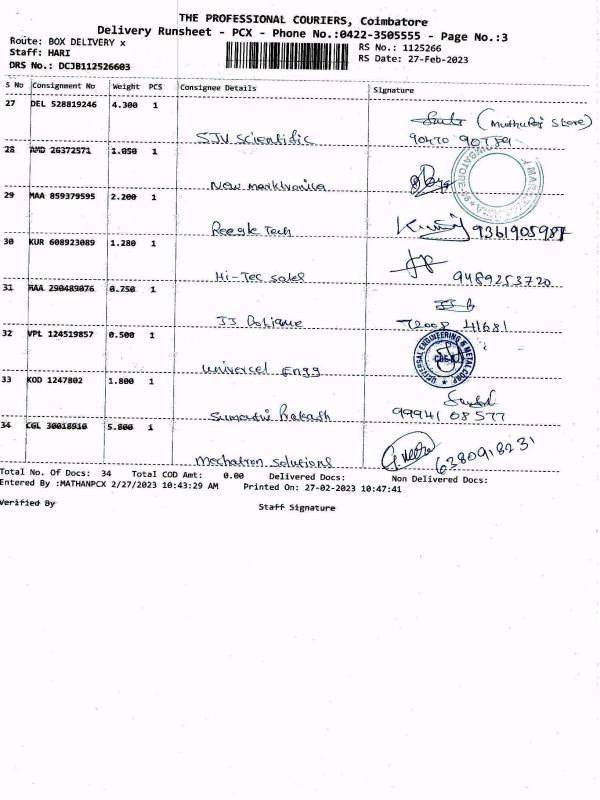 THE PROFESSIONAL COURIERS, Coimbatore
Delivery Runsheet - PCX - Phone No.:0422-3505555 - Page No.:3
Route: BOX DELIVERY x
Staff: HARI
DRS No.: DCJB112526603
RS No.: 1125266
RS Date: 27-Feb-2023
S No Consignment No Weight PCS Consignee Details Signature
27 DEL 528819246 4.300 1
(Muthuraj Store)
SJV Scientific
28 AMD 26372571 1.050 1
New marktronica
29 MAA 859379595 2.200 1
Tech 9361905987
30 KUR 608923089 1.280 1
Hi-Tec sales 9489253720
31 MAA 290489076 0.750 1
JJ 72008 41681
32 VPL 124519857 0.500 1
UNIVERSAL ENGINEERING & METAL CORP
CBE-1
Univercel Engg
33 KOD 1247802 1.800 1
Prakash 99941 08577
34 CGL 30018910 5.800 1
Mechatron Solutions 6380918231
Total No. Of Docs: 34 Total COD Amt: 0.00 Delivered Docs: Non Delivered Docs:
Entered By :MATHANPCX 2/27/2023 10:43:29 AM Printed On: 27-02-2023 10:47:41
Verified By Staff Signature